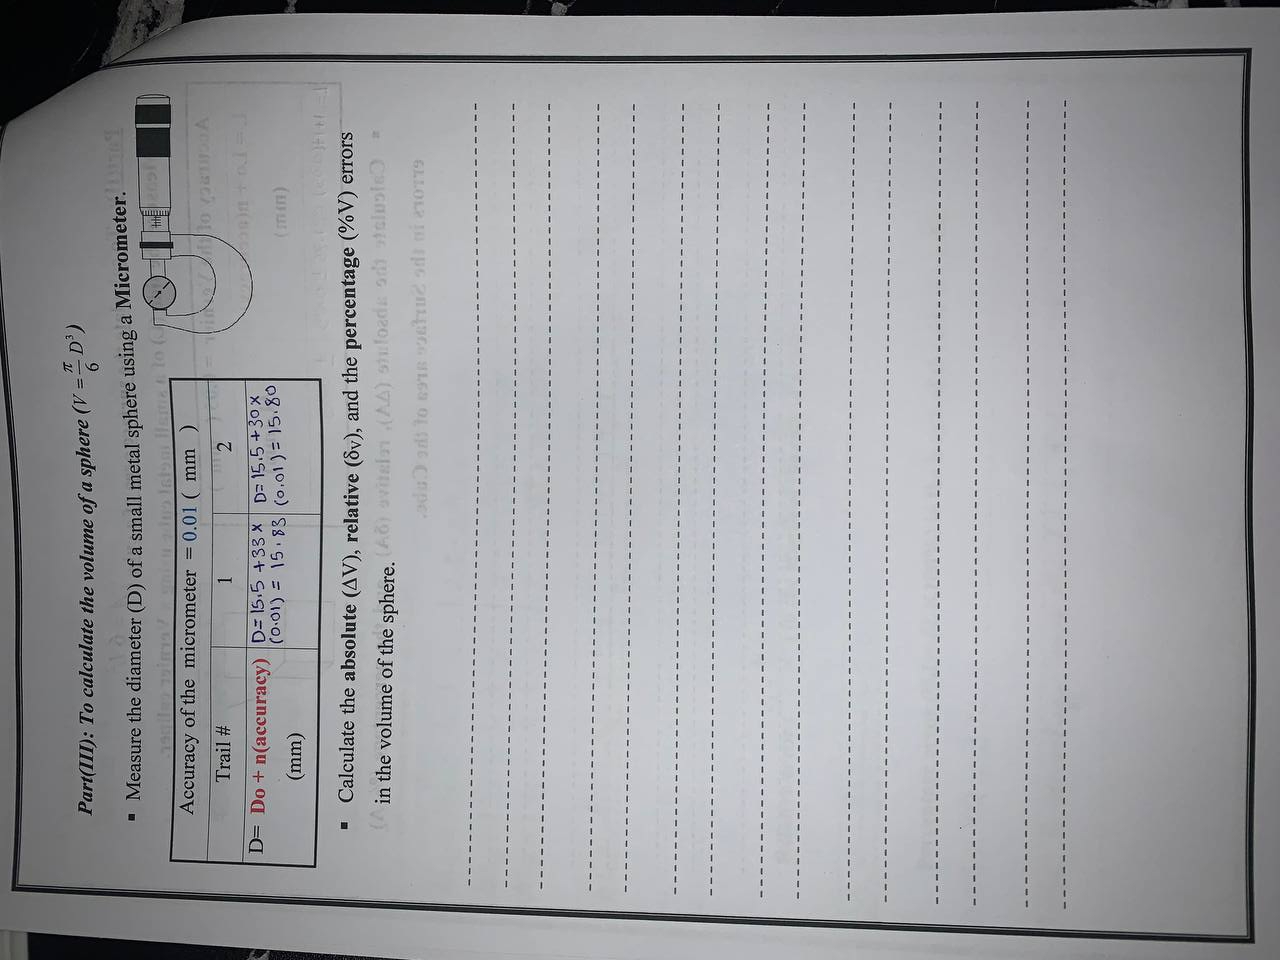 Part(III): To calculate the volume of a sphere (V = π/6 D³)
▪ Measure the diameter (D) of a small metal sphere using a Micrometer.
Accuracy of the micrometer = 0.01 ( mm )
Trail # 1 2
D= Do + n(accuracy) D=15.5 +33 x D=15.5 +30 x
(mm) (0.01) = 15.83 (0.01) = 15.80
▪ Calculate the absolute (ΔV), relative (δv), and the percentage (%V) errors
in the volume of the sphere.